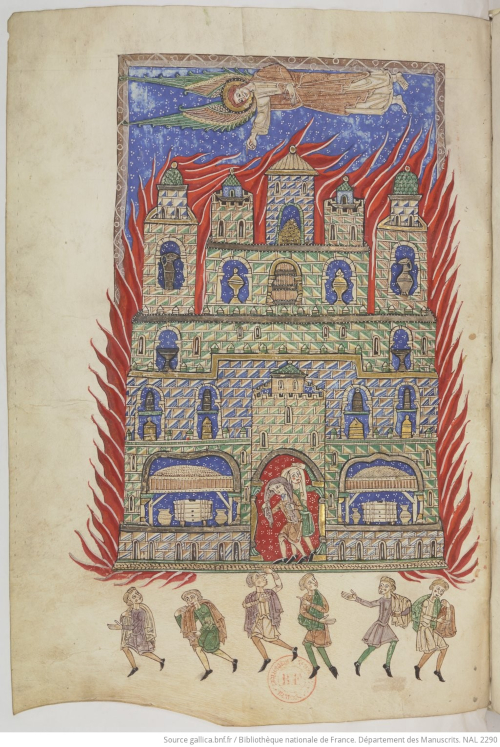 B F
Source gallica.bnf.fr / Bibliothèque nationale de France. Département des Manuscrits. NAL 2290